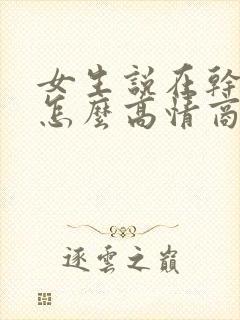 女生說在幹
怎麼高情商
逐雲之巔